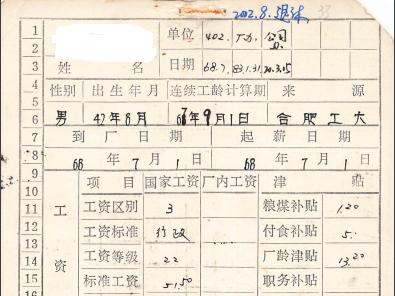 2002.8.退休 33
1 单位 402. 厂办. 公司
2
3 姓 名 日期 68.7. 83.1.31
4 性别 出生年月 连续工龄计算期 来 源
5
6 男 47年8月 67年9月1日 合肥工大
7 到厂日期 起薪日期
8 68年7月1日 68年7月1日
9
10 项目 国家工资 厂内工资 津 贴
11 工 工资区别 3 粮煤补贴 1.20
12 工资标准 行政 付食补贴 5.
13
14 工资等级 22 厂龄津贴 13.20
15 资 标准工资 51.50 职务补贴
16